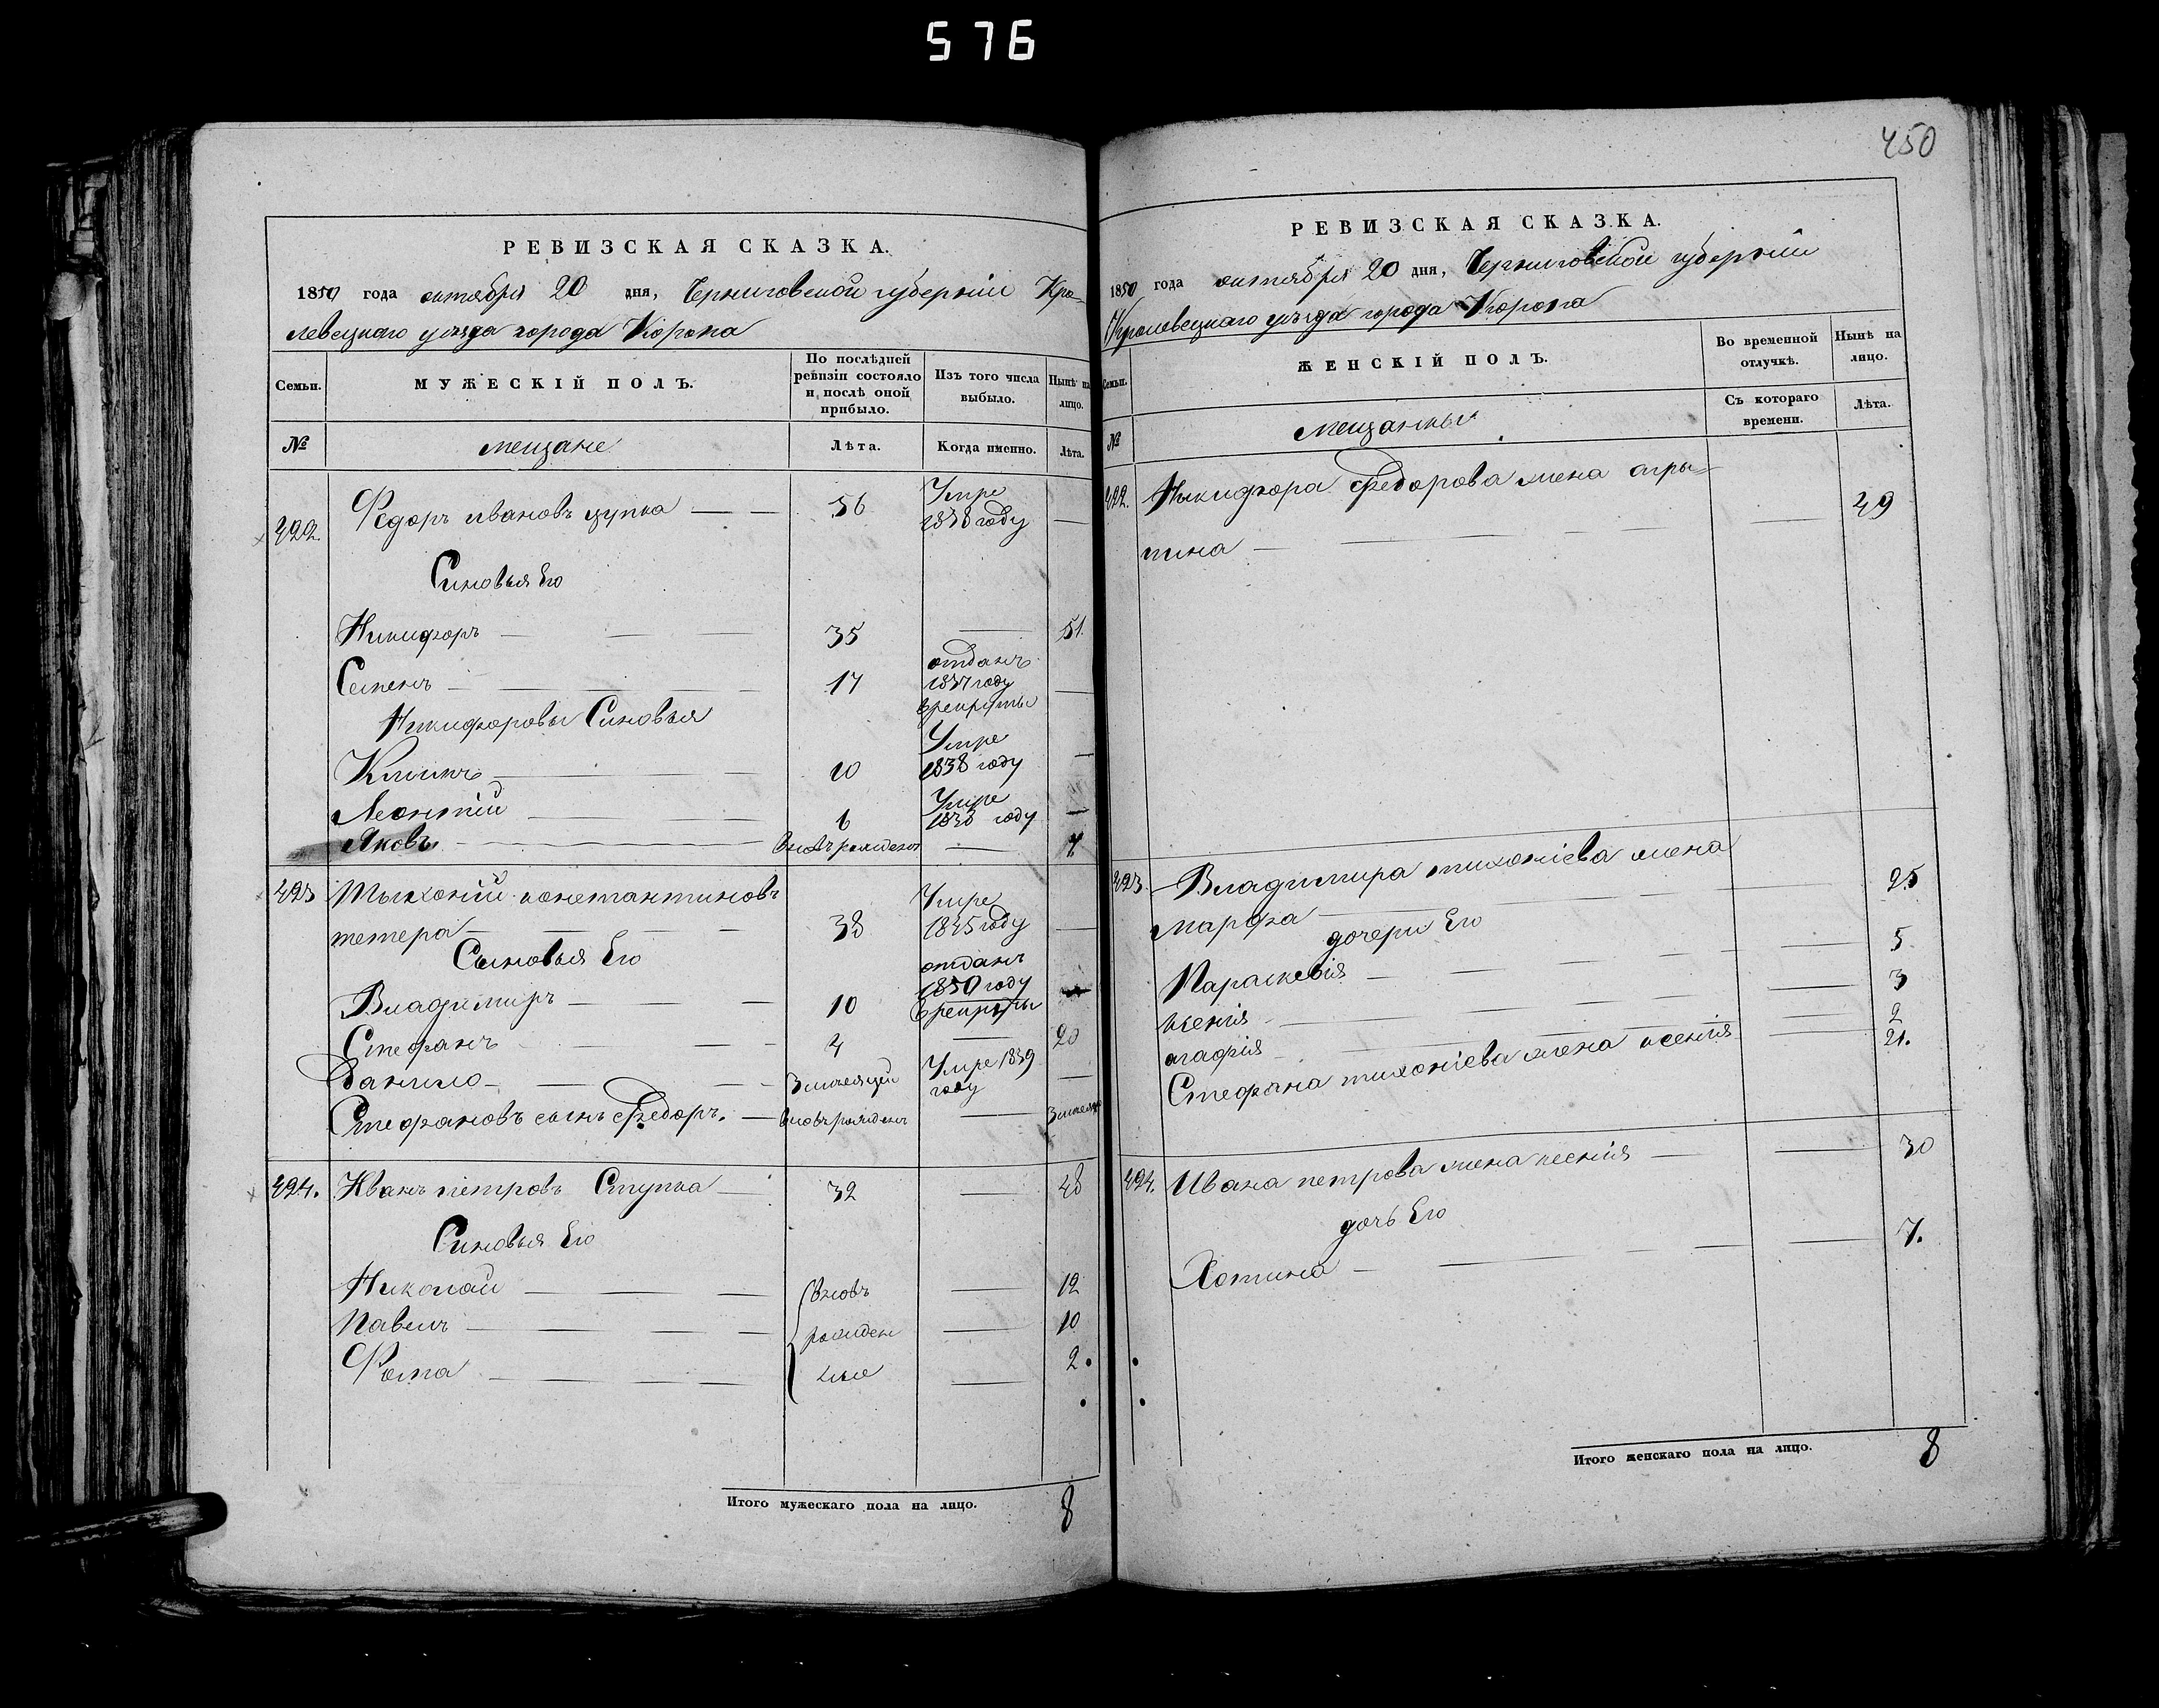 576
450
РЕВИЗСКАЯ СКАЗКА.
1850 года октября 20 дня, Черниговской губернии Кро-
левецкаго уезда города Коропа
Семьи. МУЖЕСКІЙ ПОЛЪ. По послѣдней ревизіи состояло и послѣ оной прибыло. Изъ того числа выбыло. Нынѣ на лицо.
№ мещане Лѣта. Когда именно. Лѣта.
422. Федоръ ивановъ цупка 56 Умре 1838 году
Синовья Его
Никифоръ 35 51.
Семенъ 17 отданъ 1837 году
Никифоровы Синовья
Климъ 10 Умре 1838 году
Леонтій 6 Умре 1838 году
Яковъ 7
423 Тыхоній константиновъ
тетера 38 Умре 1845 году
Сыновья Его
Владимиръ 10 отданъ 1850 году в рекруты
Стефанъ 4 20
Данило 3 месяцей Умре 1839 году
Стефановъ сынъ Федоръ. вновь рожденъ
424. Иванъ петровъ Ступка 32 48
Синовья Его
Николай вновь 12
Павелъ рожден 10
Фома ные 2
Итого мужескаго пола на лицо. 8
РЕВИЗСКАЯ СКАЗКА.
1850 года октября 20 дня, Черниговской губерніи
Кролевецкаго уѣзда города Коропа
Семьи. ЖЕНСКІЙ ПОЛЪ. Во временной отлучкѣ. Нынѣ на лицо.
№ Мещанкы Съ котораго времени. Лѣта.
422. Никифора Федорова жена агры-
пина 49
423. Владимира тихоніева жена
марфа 25
дочери Его
Параскевія 5
ксенія 3
агафія 2
Стефана тихоніева жена ксенія 21.
424. Ивана петрова жена ксенія 30
дочь Его
Хотина 7.
Итого женскаго пола на лицо. 8